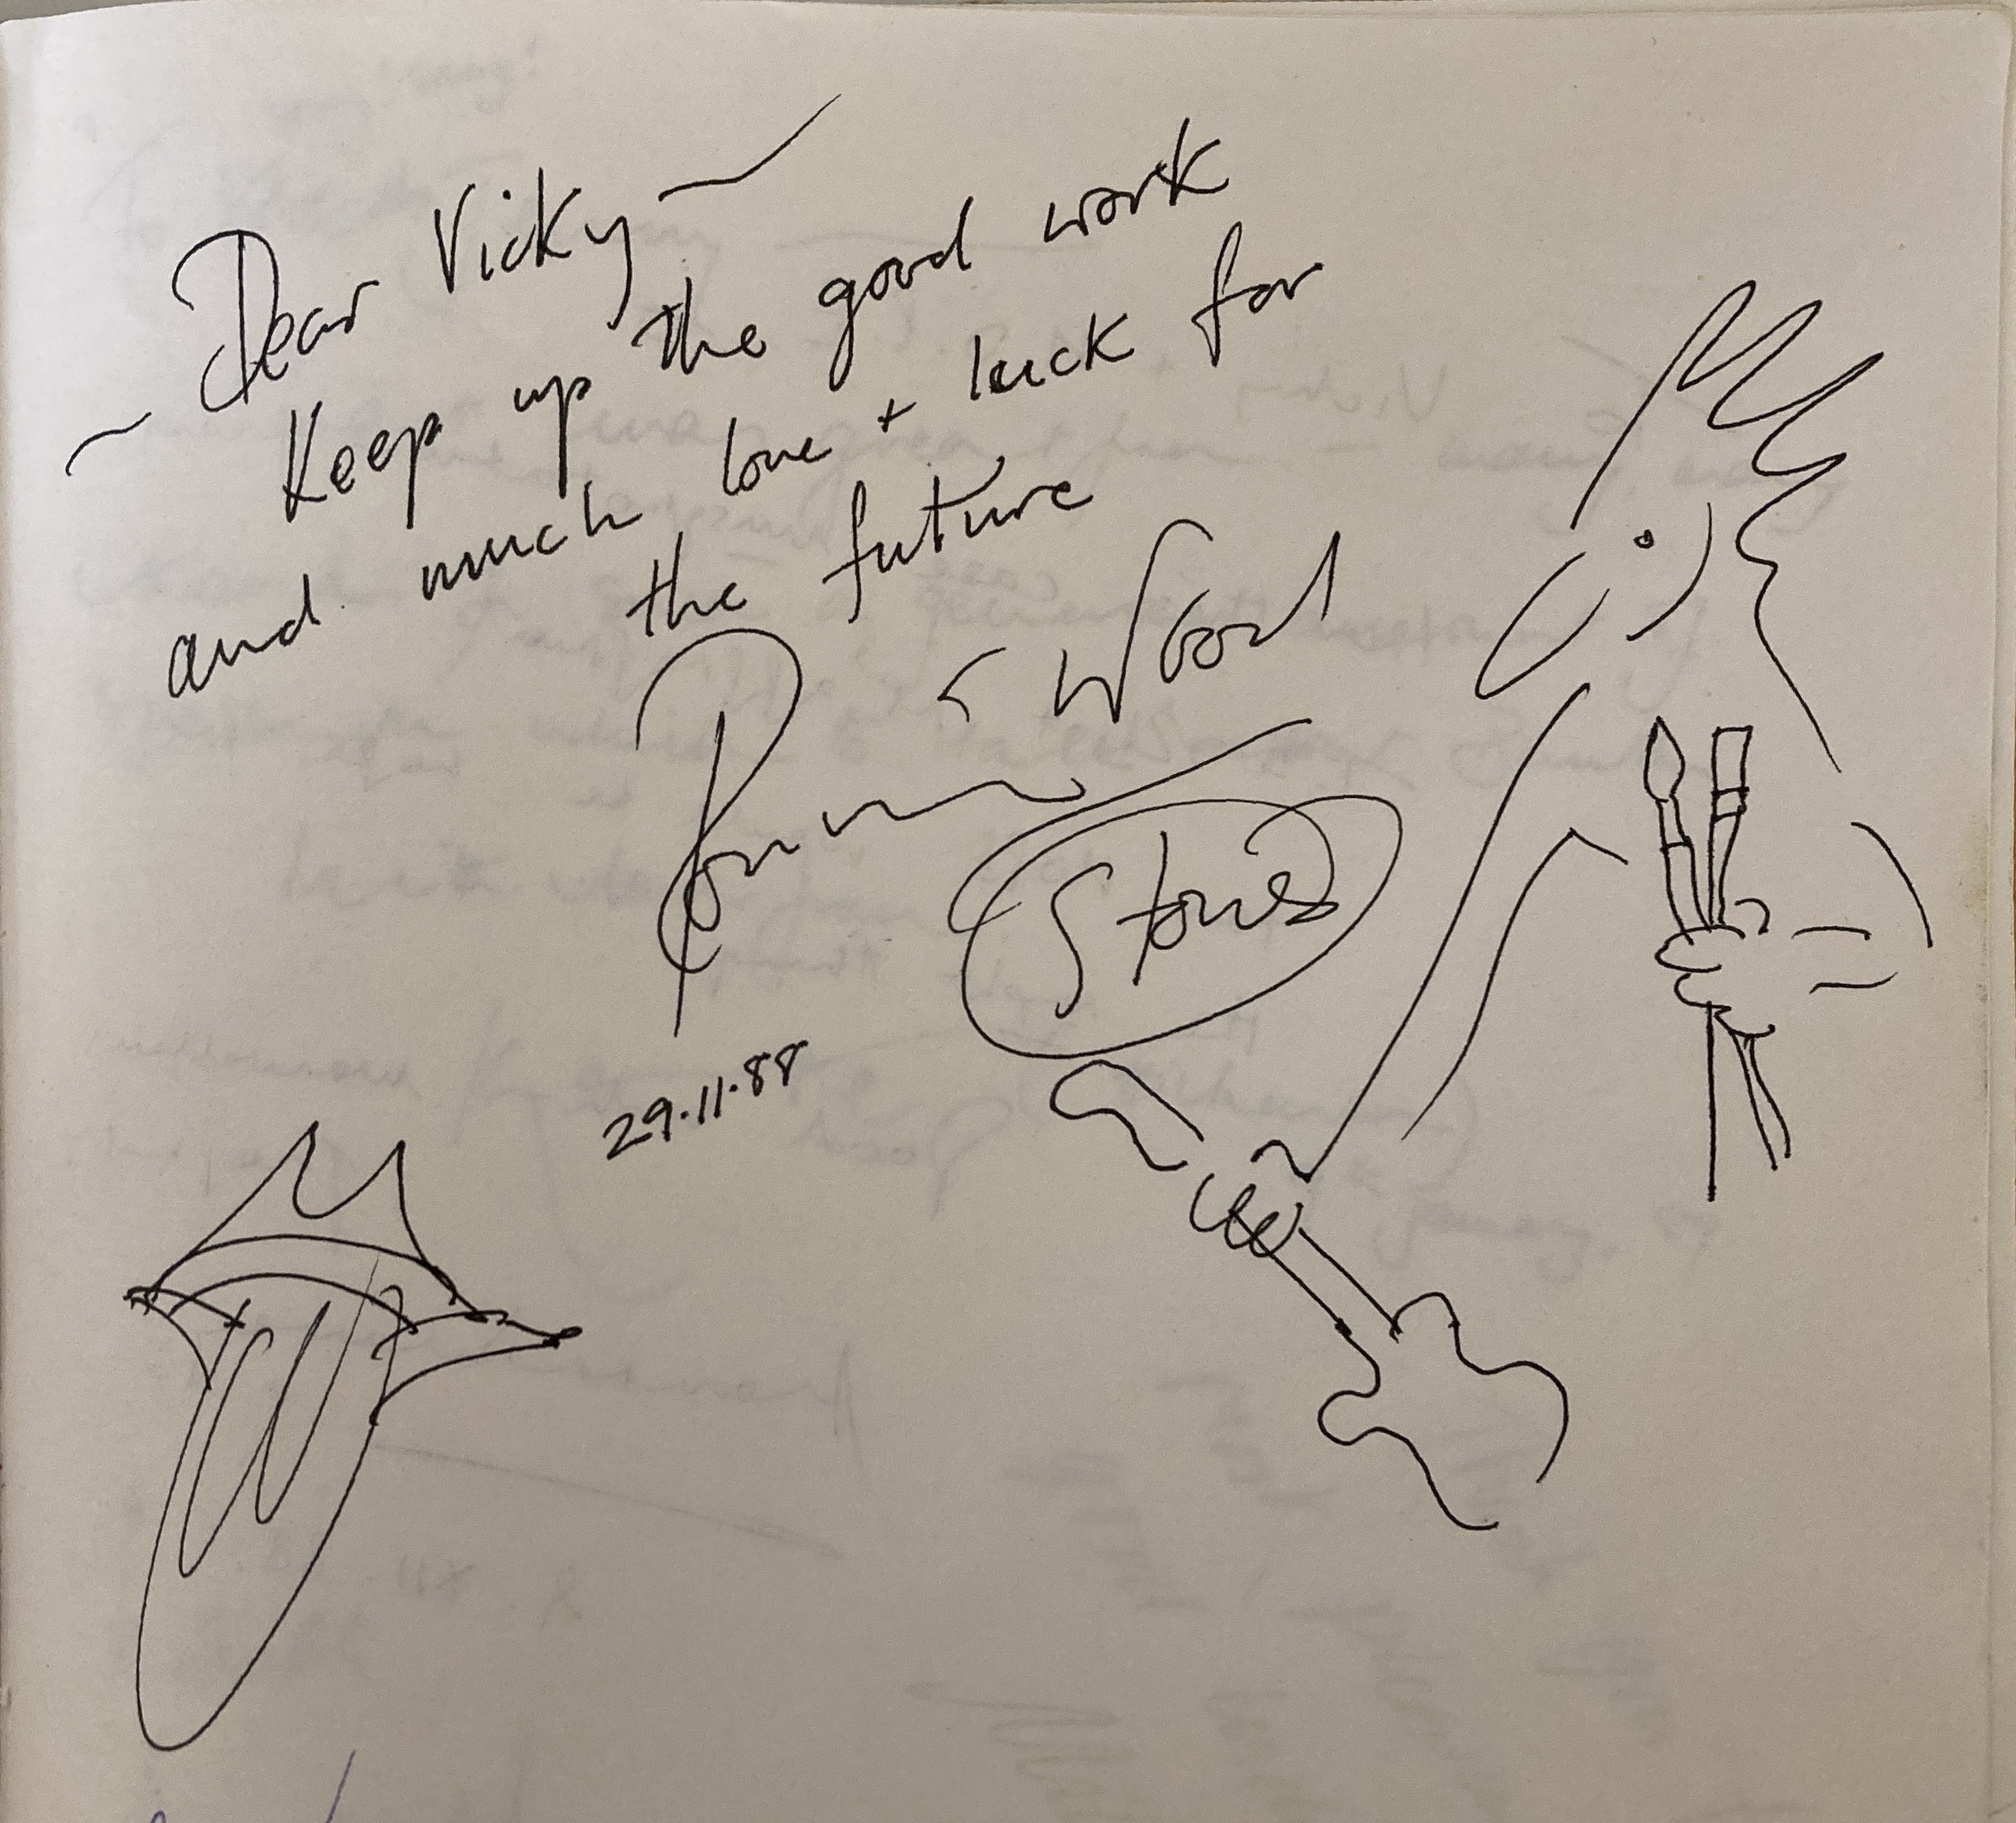 ~ Dear Vicky ~
Keep up the good work
and much love + luck for
the future
Ronnie Wood
Stones
29.11.88